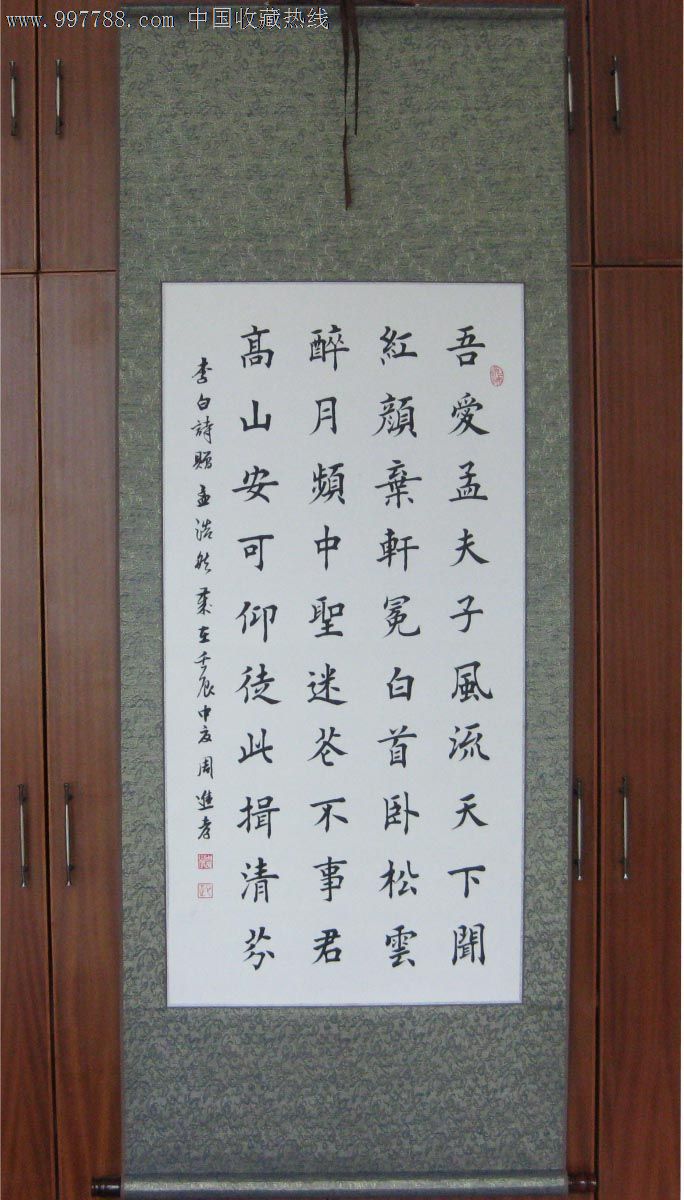 www.997788.com 中国收藏热线
吾愛孟夫子風流天下聞
紅顔棄軒冕白首卧松雲
醉月頻中聖迷花不事君
髙山安可仰徒此揖清芬
李白詩贈孟浩然歲在壬辰中夏周進孝